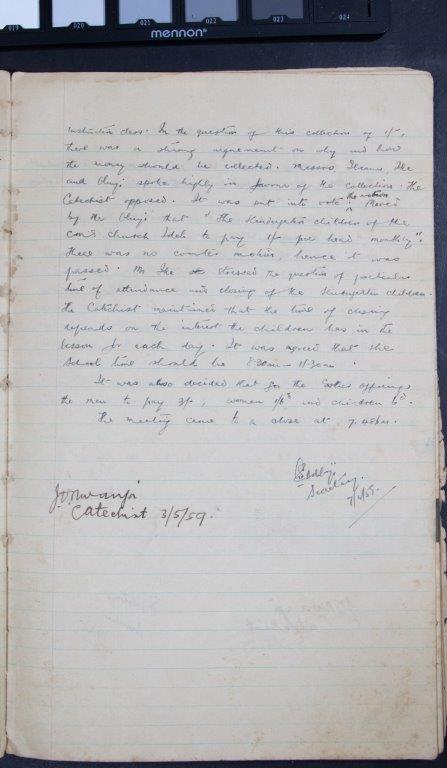 019 020 021 022 023 024
mennon
Instruction class. In the question of this collection of 1/-,
there was a strong arguement on why and how
the money should be collected. Messrs Ike
and Obuji spoke highly in favour of the collection. The
Catechist opposed. It was put into vote the motion Moved
by Mr Obuji that "The Kindergarten children of the
C.M.S church Idoh to pay 1/- per head monthly".
There was no counter motion, hence it was
passed. Mr Ike stressed the question of particular
time of attendance and closing of the Kindergarten children.
The Catechist maintained that the time of closing
depends on the interest the children has in the
lesson for each day. It was agreed that the
School time should be 8.30am - 11.30am.
It was also decided that for the Easter offerings
the men to pay 3/-, women 1/6d and children 6d.
The meeting came to a close at 7.48am.
Secretary
J. O. Nwanji
Catechist 3/5/59.